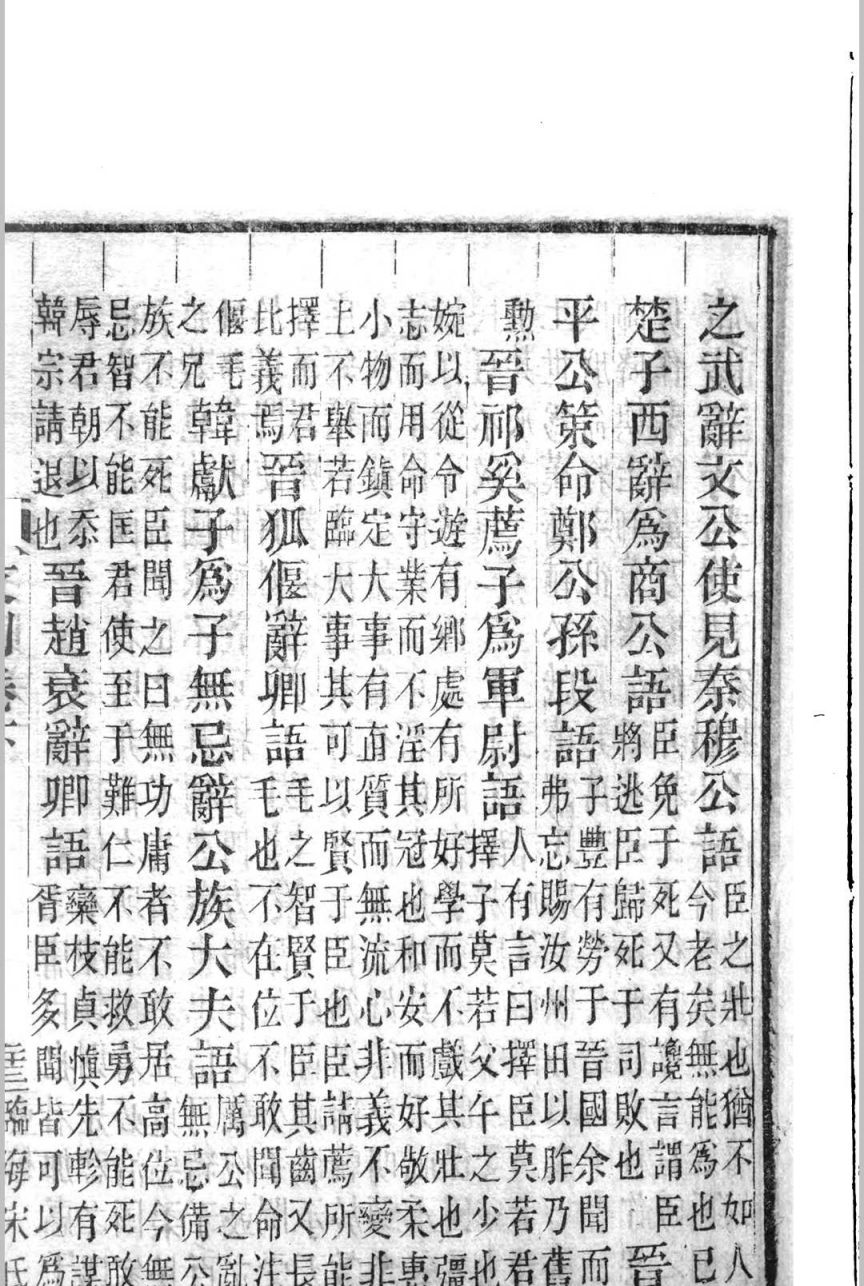 之武辭文公使見秦穆公語臣之壯也猶不如人
今老矣無能爲也已
楚子西辭爲商公語臣免于死又有讒言謂臣
將逃臣歸死于司敗也晉
平公策命鄭公孫段語子豐有勞于晉國余聞而
弗忘賜汝州田以胙乃舊
勲晉祁奚薦子爲軍尉語人有言曰擇臣莫若君
擇子莫若父午之少也
婉以從令遊有鄉處有所好學而不戲其壯也彊
志而用命守業而不淫其冠也和安而好敬柔惠
小物而鎮定大事有直質而無流心非義不變非
上不舉若臨大事其可以賢于臣也臣請薦所能
擇而君
比義焉晉狐偃辭卿語毛之智賢于臣其齒又長
毛也不在位不敢聞命注
偃毛
之兄韓獻子爲子無忌辭公族大夫語厲公之亂
無忌備公
族不能死臣聞之曰無功庸者不敢居高位今無
忌智不能匡君使至于難仁不能救勇不能死敢
辱君朝以忝
韓宗請退也晉趙衰辭卿語欒枝貞慎先軫有謀
胥臣多聞皆可以爲
臨海宋氏